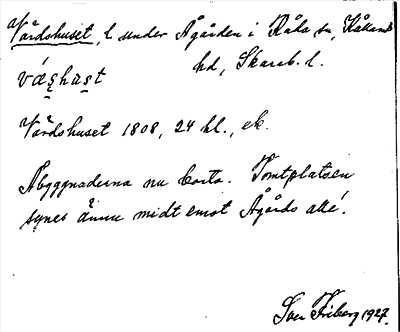 Vårdshuset, l under Ågården i Råda sn, Kållands
hd, Skarab. l.
Vårdshuset 1808, 24 hl., ek.
Åbyggnaderna nu borta. Tomtplatsen
synes ännu midt emot Ågårds allé.
Sven Friberg 1927.